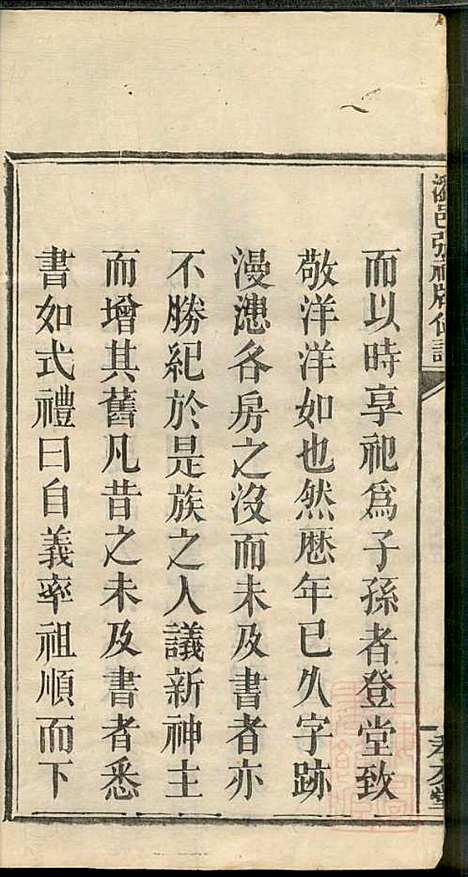 而以時享祀爲子孫者登堂致
敬洋洋如也然歷年已久字跡
漫漶各房之沒而未及書者亦
不勝紀於是族之人議新神主
而增其舊凡昔之未及書者悉
書如式禮曰自義率祖順而下